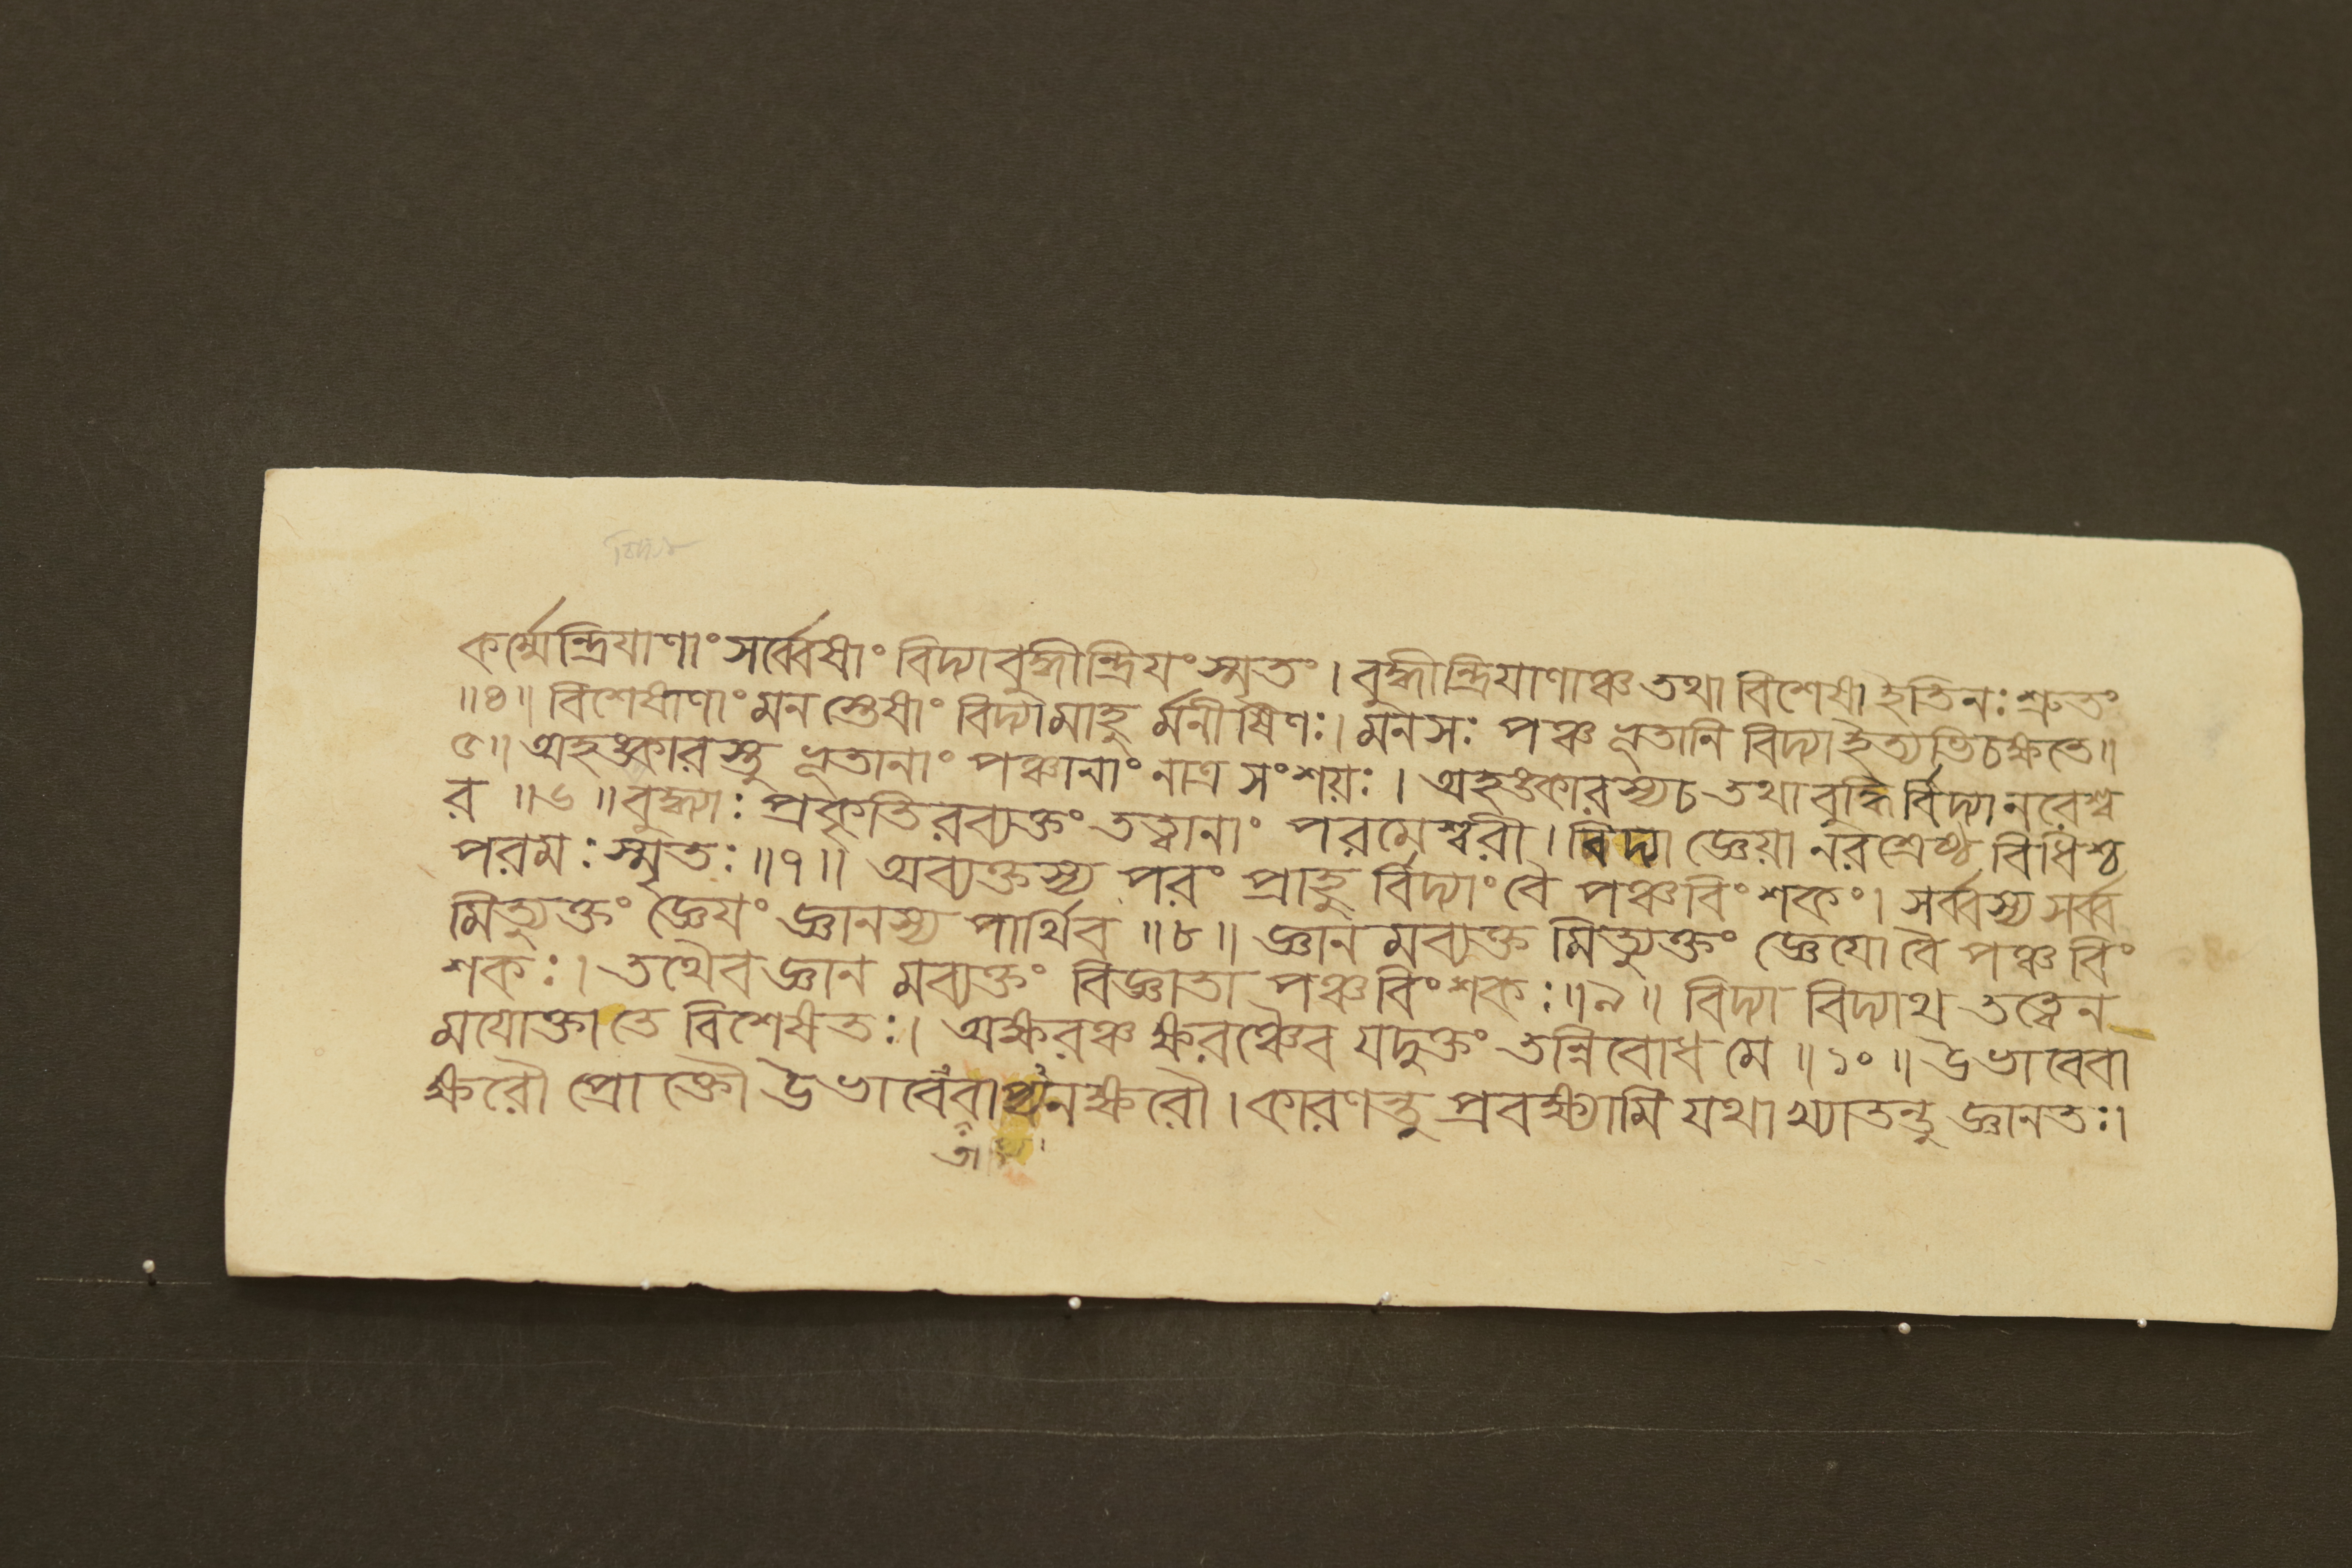 কর্ম্মেন্দ্রিযাণাং সর্ব্বেষাং বিদ্যা বুদ্ধীন্দ্রিযং স্মৃতং । বুদ্ধীন্দ্রিযাণাঞ্চ তথা বিশেষা ইতি নঃ শ্রুতং
॥৪॥ বিশেষাণাং মনস্তেষাং বিদ্যামাহু র্মনীষিণঃ । মনসঃ পঞ্চ ভূতানি বিদ্যা ইত্যভিচক্ষতে ॥
৫॥ অহঙ্কারস্তু ভূতানাং পঞ্চানাং নাত্র সংশয়ঃ । অহঙ্কারস্য চ তথা বুদ্ধি র্বিদ্যা নরেশ্ব
র ॥৬॥ বুদ্ধ্যাঃ প্রকৃতিরব্যক্তং তত্ত্বানাং পরমেশ্বরী । বিদ্যা জ্ঞেয়া নরশ্রেষ্ঠ বিধিশ্চ
পরমঃ স্মৃতঃ ॥৭॥ অব্যক্তস্য পরং প্রাহু র্বিদ্যাং বৈ পঞ্চবিংশকং । সর্ব্বস্য সর্ব্ব
মিত্যুক্তং জ্ঞেযং জ্ঞানস্য পার্থিব ॥৮॥ জ্ঞান মব্যক্ত মিত্যুক্তং জ্ঞেযো বৈ পঞ্চবিং
শকঃ । তথৈব জ্ঞান মব্যক্তং বিজ্ঞাতা পঞ্চবিংশকঃ ॥৯॥ বিদ্যা বিদ্যাথ তত্ত্বেন
মযোক্তা তে বিশেষতঃ । অক্ষরঞ্চ ক্ষরঞ্চৈব যদুক্তং তন্নিবোধ মে ॥১০॥ উভাবেবা
ক্ষরৌ প্রোক্তৌ উভাবেবা প্যনক্ষরৌ । কারণন্তু প্রবক্ষ্যামি যথা খ্যাতন্তু জ্ঞানতঃ ।